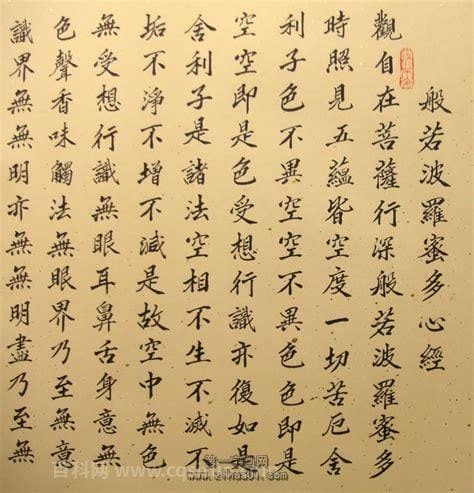 般若波羅蜜多心經
觀自在菩薩行深般若波羅蜜多
時照見五蘊皆空度一切苦厄舍
利子色不異空空不異色色即是
空空即是色受想行識亦復如是
舍利子是諸法空相不生不滅不
垢不淨不增不減是故空中無色
無受想行識無眼耳鼻舌身意無
色聲香味觸法無眼界乃至無意
識界無無明亦無無明盡乃至無
百科网